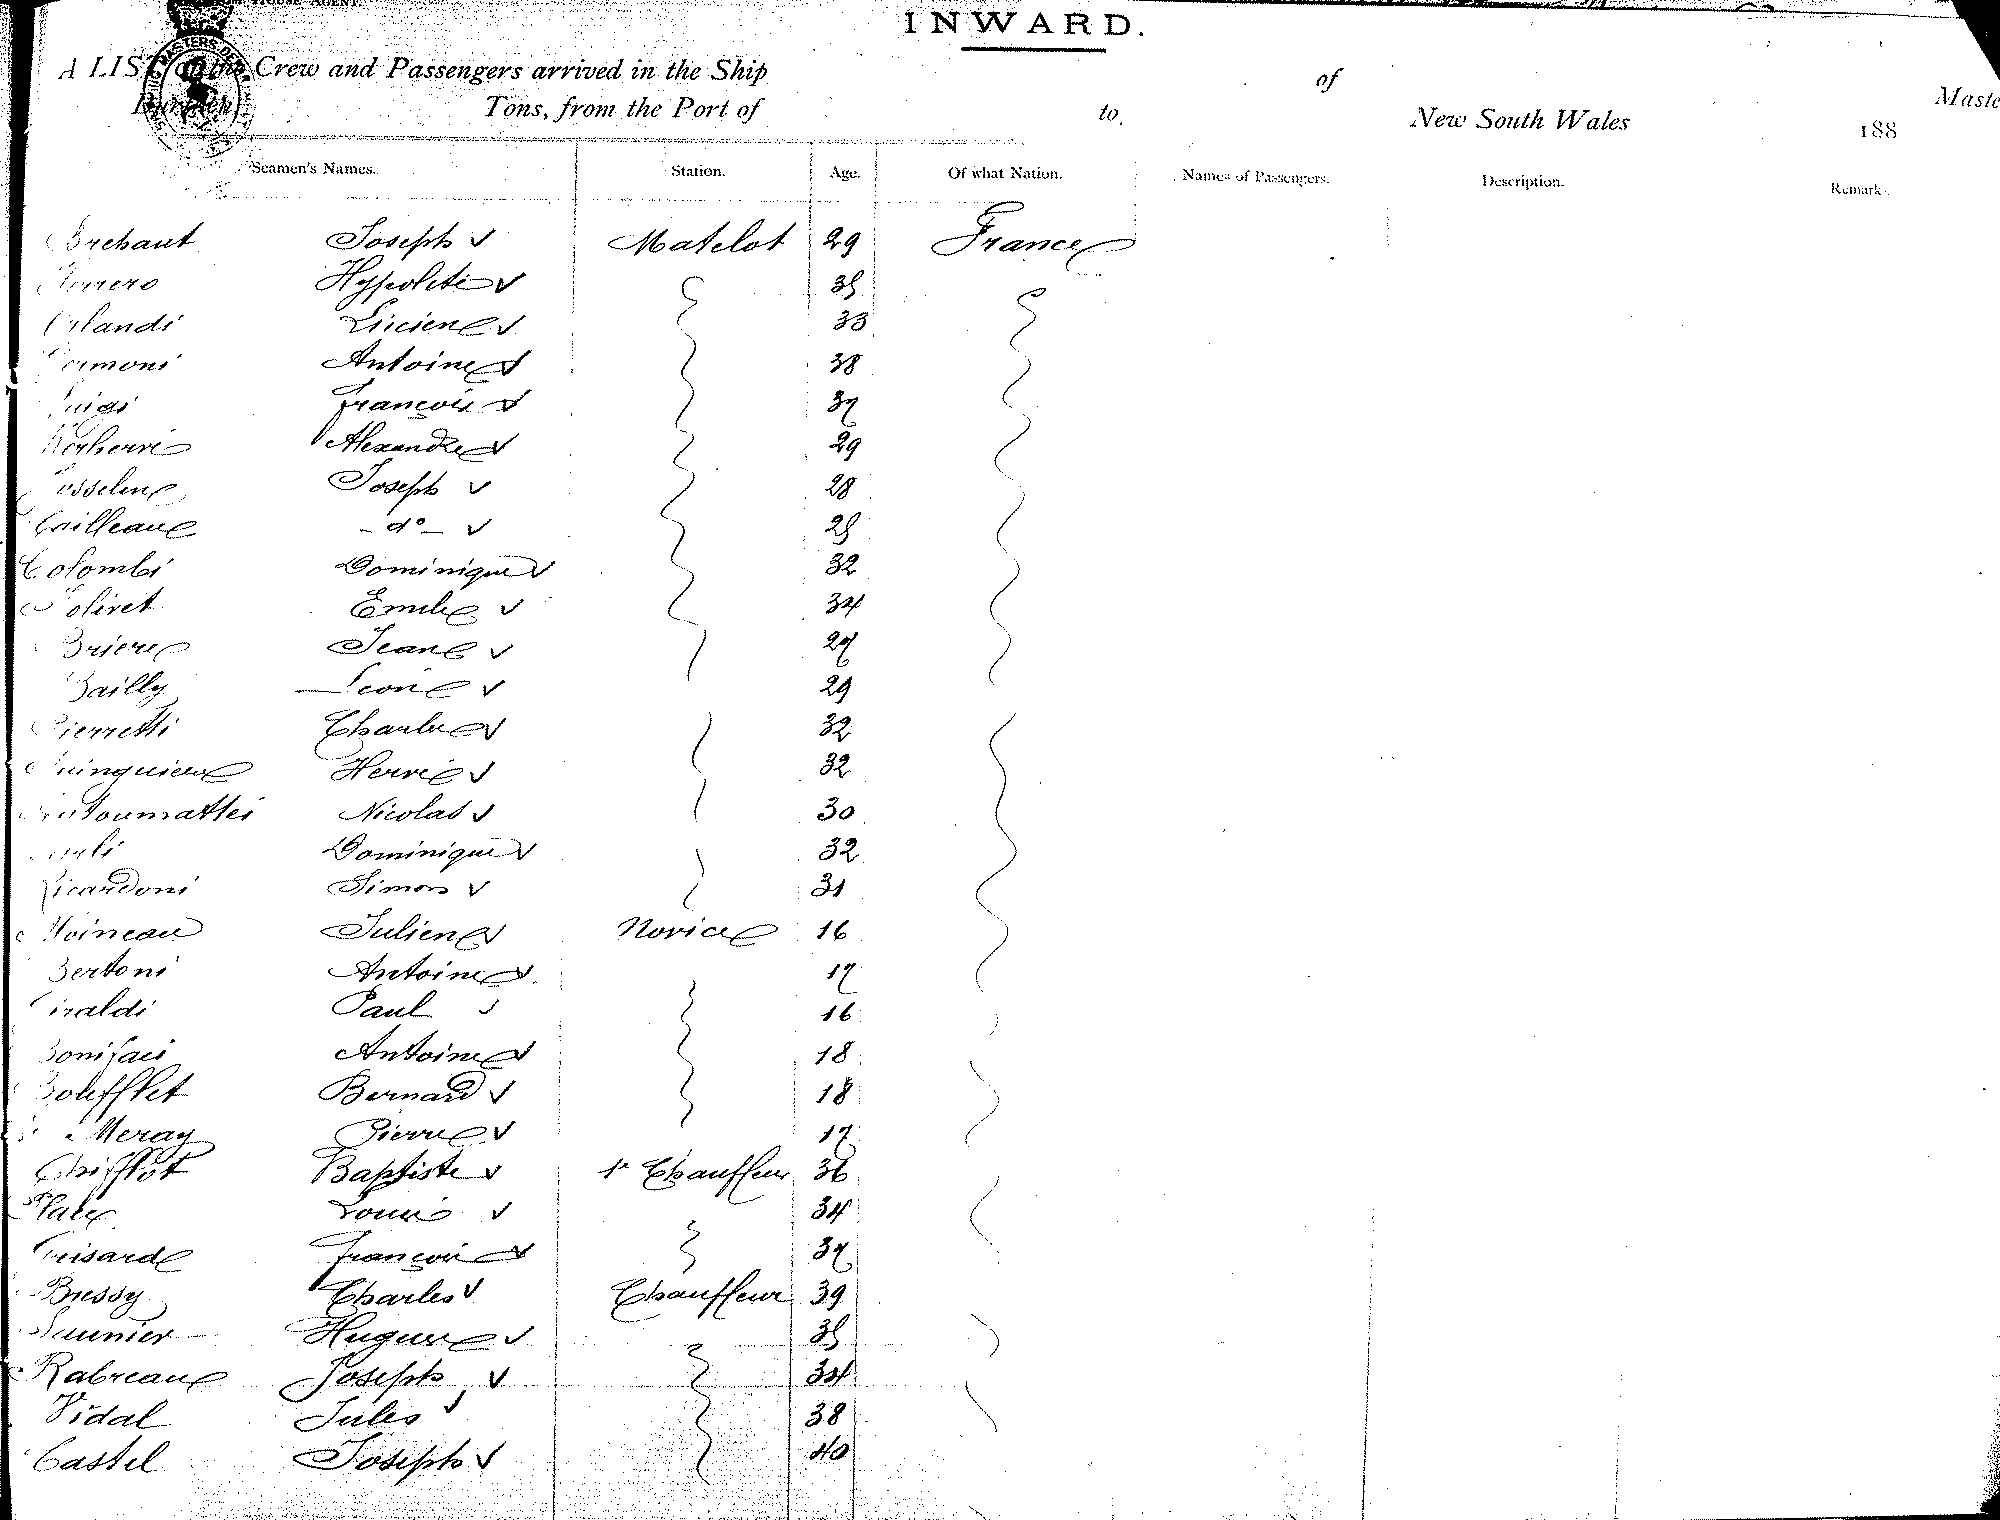 INWARD.
A LIST of the Crew and Passengers arrived in the Ship of Master
Burthen Tons, from the Port of to New South Wales 188
Seamen's Names. Station. Age. Of what Nation. Names of Passengers. Description. Remarks.
Brehaut Joseph Matelot 29 France
Hyppolite 35
Orlandi Lucien 33
Antoine 38
Luigi François 37
Kerhervé Alexandre 29
Josselin Joseph 28
Cailleau - do - 25
Colombi Dominique 32
Soliret Emile 34
Briere Jean 27
Bailly Leon 29
Pierretti Charles 32
Quinquiere Hervé 32
Antoumattei Nicolas 30
Dominique 32
Ricardoni Simon 31
Moineau Julien Novice 16
Bertoni Antoine 17
Giraldi Paul 16
Bonifaci Antoine 18
Boufflet Bernard 18
Meray Pierre 17
Chifflot Baptiste 1r Chauffeur 36
Place Louis 34
Guisard François 37
Bussy Charles Chauffeur 39
Saunier Hugues 35
Rabreau Joseph 34
Vidal Jules 38
Castel Joseph 40